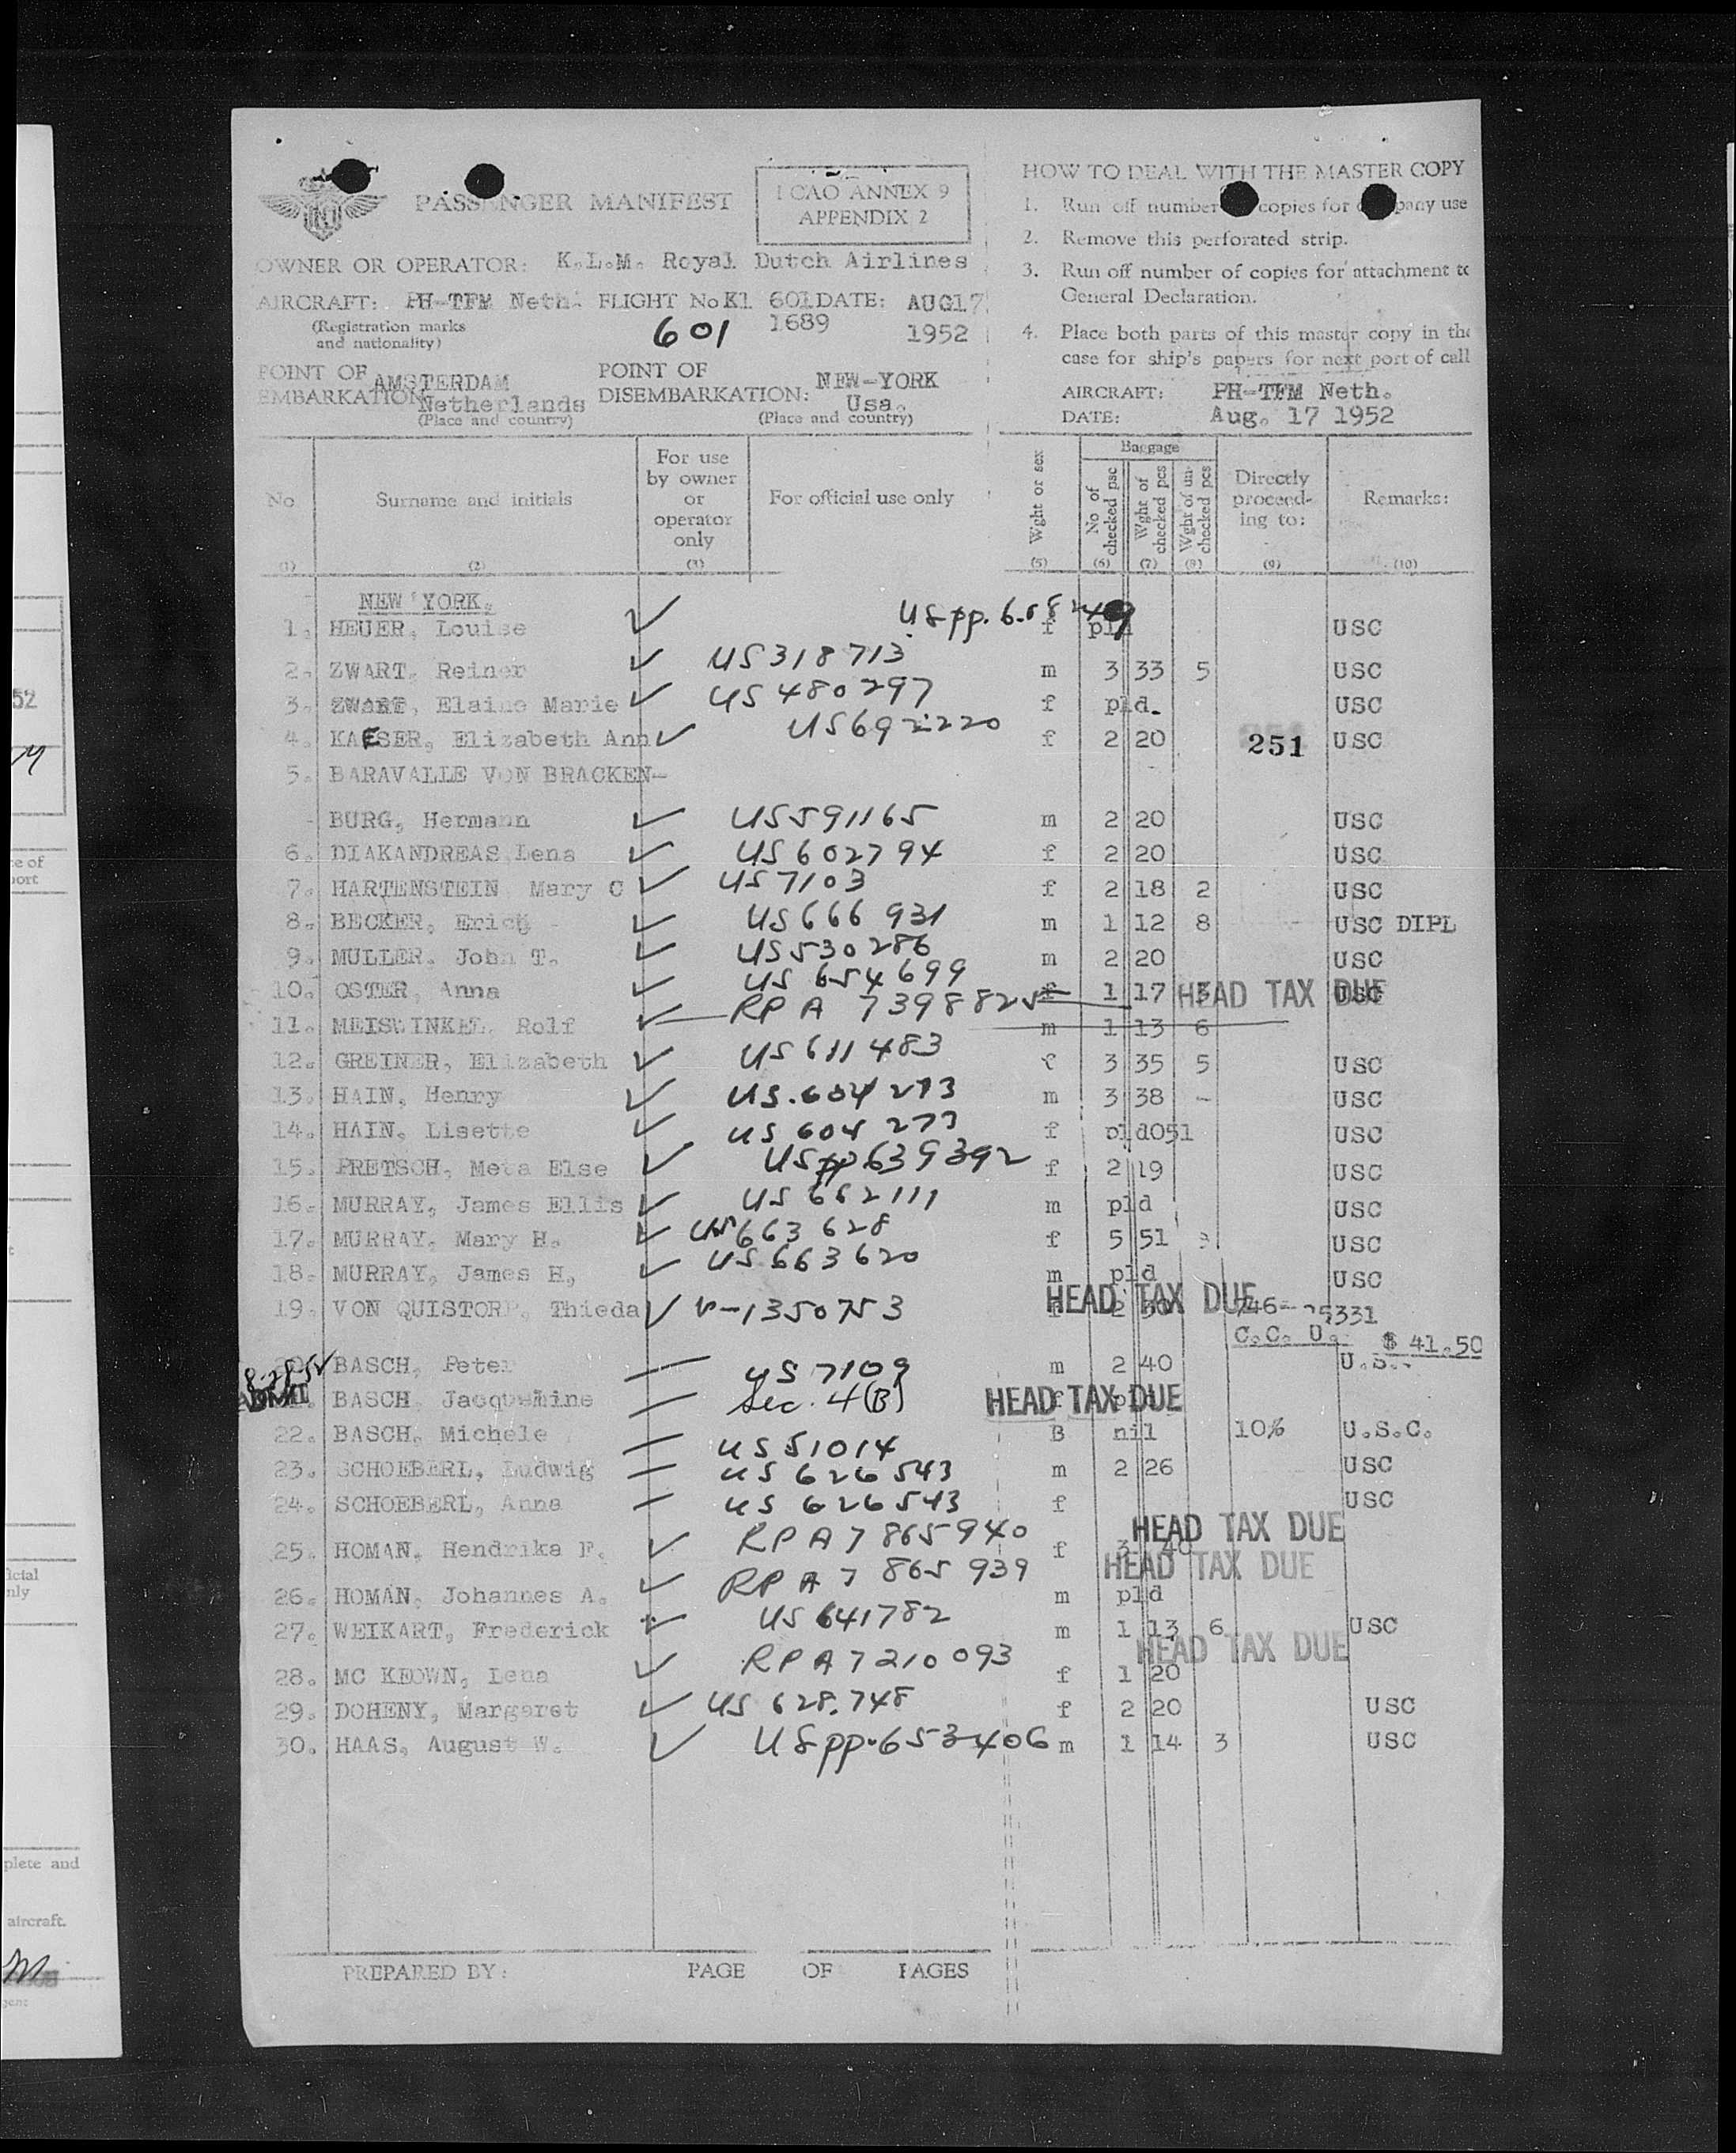 PASSENGER MANIFEST
ICAO ANNEX 9
APPENDIX 2
OWNER OR OPERATOR: K.L.M. Royal Dutch Airlines
AIRCRAFT: PH-TFM Neth. FLIGHT No Kl 601 DATE: AUG17
(Registration marks and nationality)
601 1689 1952
POINT OF EMBARKATION: AMSTERDAM Netherlands
(Place and country)
POINT OF DISEMBARKATION: NEW-YORK Usa.
(Place and country)
HOW TO DEAL WITH THE MASTER COPY
1. Run off number copies for company use
2. Remove this perforated strip.
3. Run off number of copies for attachment to
General Declaration.
4. Place both parts of this master copy in the
case for ship's papers for next port of call
AIRCRAFT: PH-TFM Neth.
DATE: Aug. 17 1952
No (1)
Surname and initials (2)
For use by owner or operator only (3)
For official use only
Wght or sex (5)
Baggage
No of checked psc (6)
Wght of checked pcs (7)
Wght of un-checked pcs (8)
Directly proceed-ing to: (9)
Remarks: (10)
NEW YORK.
1. HEUER, Louise ✓ US pp. f pld USC
2. ZWART, Reiner ✓ US 318713 m 3 33 5 USC
3. ZWART, Elaine Marie ✓ US 480297 f pld. USC
4. KAESER, Elizabeth Ann ✓ US 692220 f 2 20 251 USC
5. BARAVALLE VON BRACKEN-
BURG, Hermann ✓ US 591165 m 2 20 USC
6. DIAKANDREAS Lena ✓ US 602794 f 2 20 USC
7. HARTENSTEIN Mary C ✓ US 7103 f 2 18 2 USC
8. BECKER, Erich ✓ US 666 931 m 1 12 8 USC DIPL
9. MULLER. John T. ✓ US 530286 m 2 20 USC
10. OSTER, Anna ✓ US 654699 f 1 17 3 USC
HEAD TAX DUE
11. MEISWINKEL. Rolf ✓ RPA 7398825 m 1 13 6
12. GREINER, Elizabeth ✓ US 611483 f 3 35 5 USC
13. HAIN, Henry ✓ US.604273 m 3 38 - USC
14. HAIN, Lisette US 604 273 f pld051 USC
15. PRETSCH, Meta Else ✓ US pp 639392 f 2 19 USC
16. MURRAY, James Ellis ✓ US 652111 m pld USC
17. MURRAY. Mary H. ✓ US 663 628 f 5 51 USC
18. MURRAY, James H, ✓ US 663620 m pld USC
HEAD TAX DUE
19. VON QUISTORP, Thieda ✓ V-1350753 f 2 746- 5331
C.C. U. $ 41.50
8-28-52 BASCH, Peter — US 7109 m 2 40 U.S..
ADMI BASCH, Jacqueline — Sec. 4(B) f pld
HEAD TAX DUE
22. BASCH. Michele — US 51014 B nil 10% U.S.C.
23. SCHOEBERL, Ludwig — US 626543 m 2 26 USC
24. SCHOEBERL, Anna — US 626543 f USC
HEAD TAX DUE
25. HOMAN, Hendrika F. ✓ RPA 7865940 f 3 40
HEAD TAX DUE
26. HOMAN, Johannes A. ✓ RPA 7 865 939 m pld
27. WEIKART, Frederick ✓ US 641782 m 1 13 6 USC
HEAD TAX DUE
28. MC KEOWN, Lena ✓ RPA 7210093 f 1 20
29. DOHENY, Margaret ✓ US 628.748 f 2 20 USC
30. HAAS, August W. ✓ US pp.653406 m 1 14 3 USC
PREPARED BY: PAGE OF PAGES
52
plete and
aircraft.